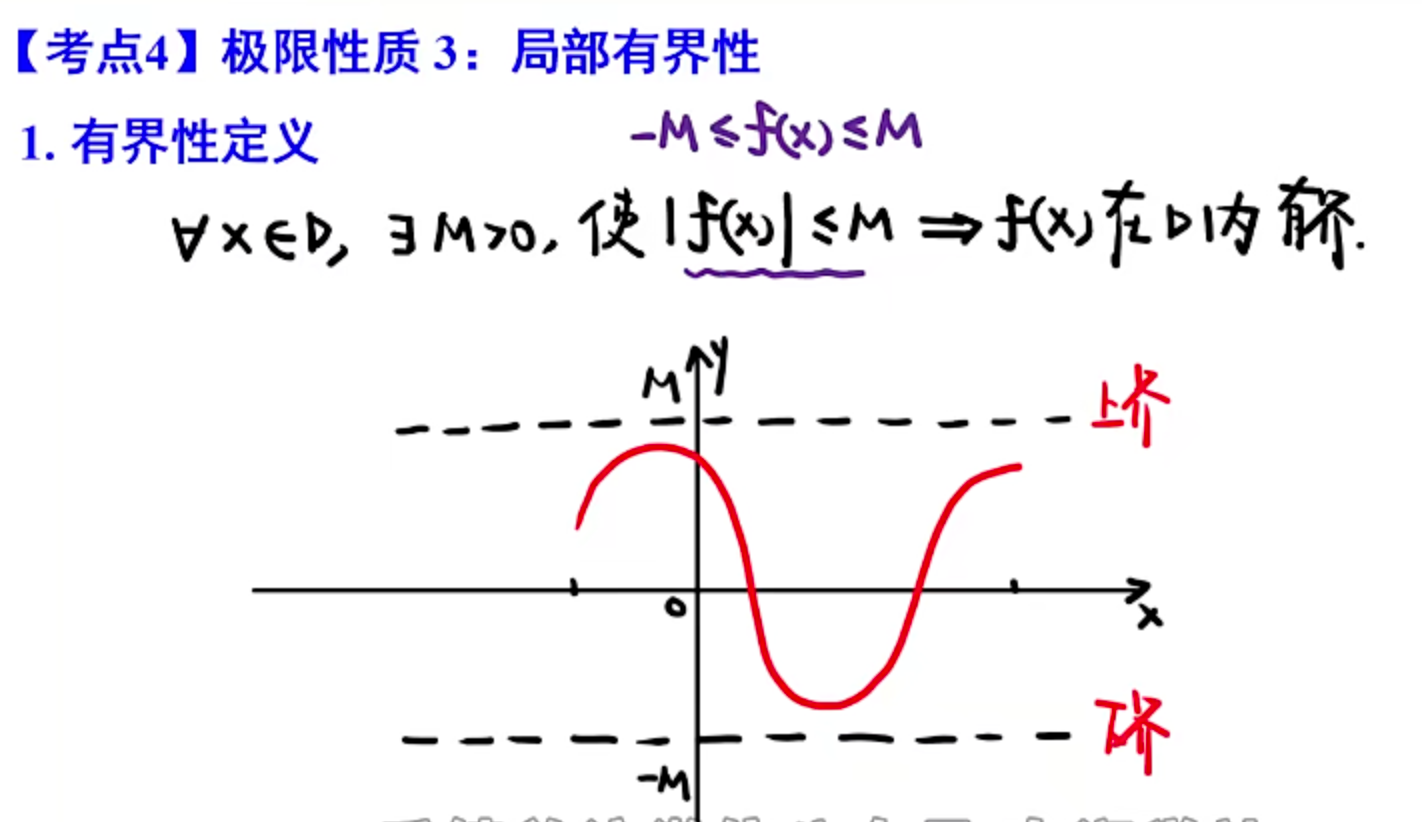 【考点4】极限性质 3：局部有界性
1. 有界性定义
-M≤f(x)≤M
∀x∈D, ∃M>0, 使|f(x)|≤M ⇒ f(x)在D内有界.
M
y
上界
0
x
下界
-M